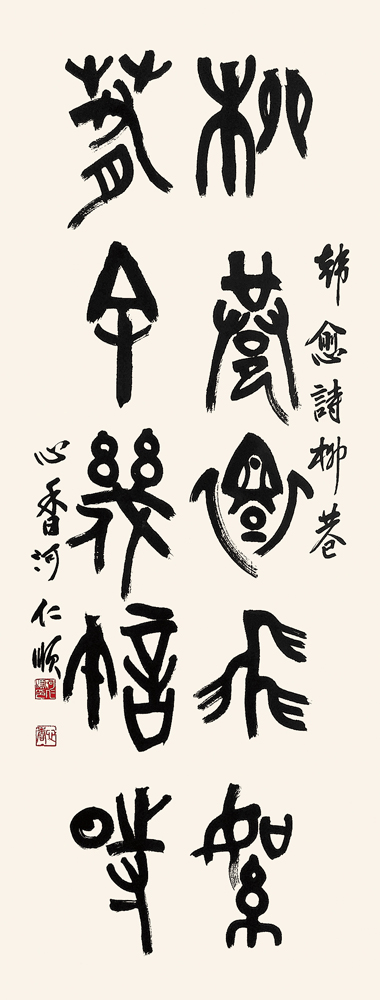 韓愈詩柳巷
柳巷還飛絮
春余幾許時
心香河仁順